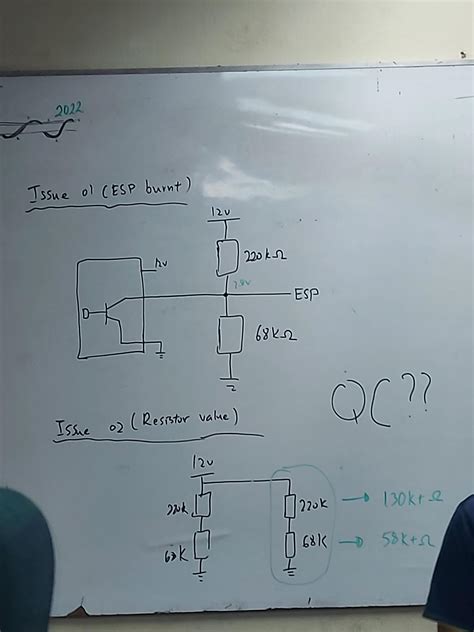 2022
Issue 01 (ESP burnt)
12v
220kΩ
12v
2.8v
ESP
68kΩ
QC??
Issue 02 (Resistor value)
12v
220k
220k → 130k+Ω
68K
68K → 58k+Ω